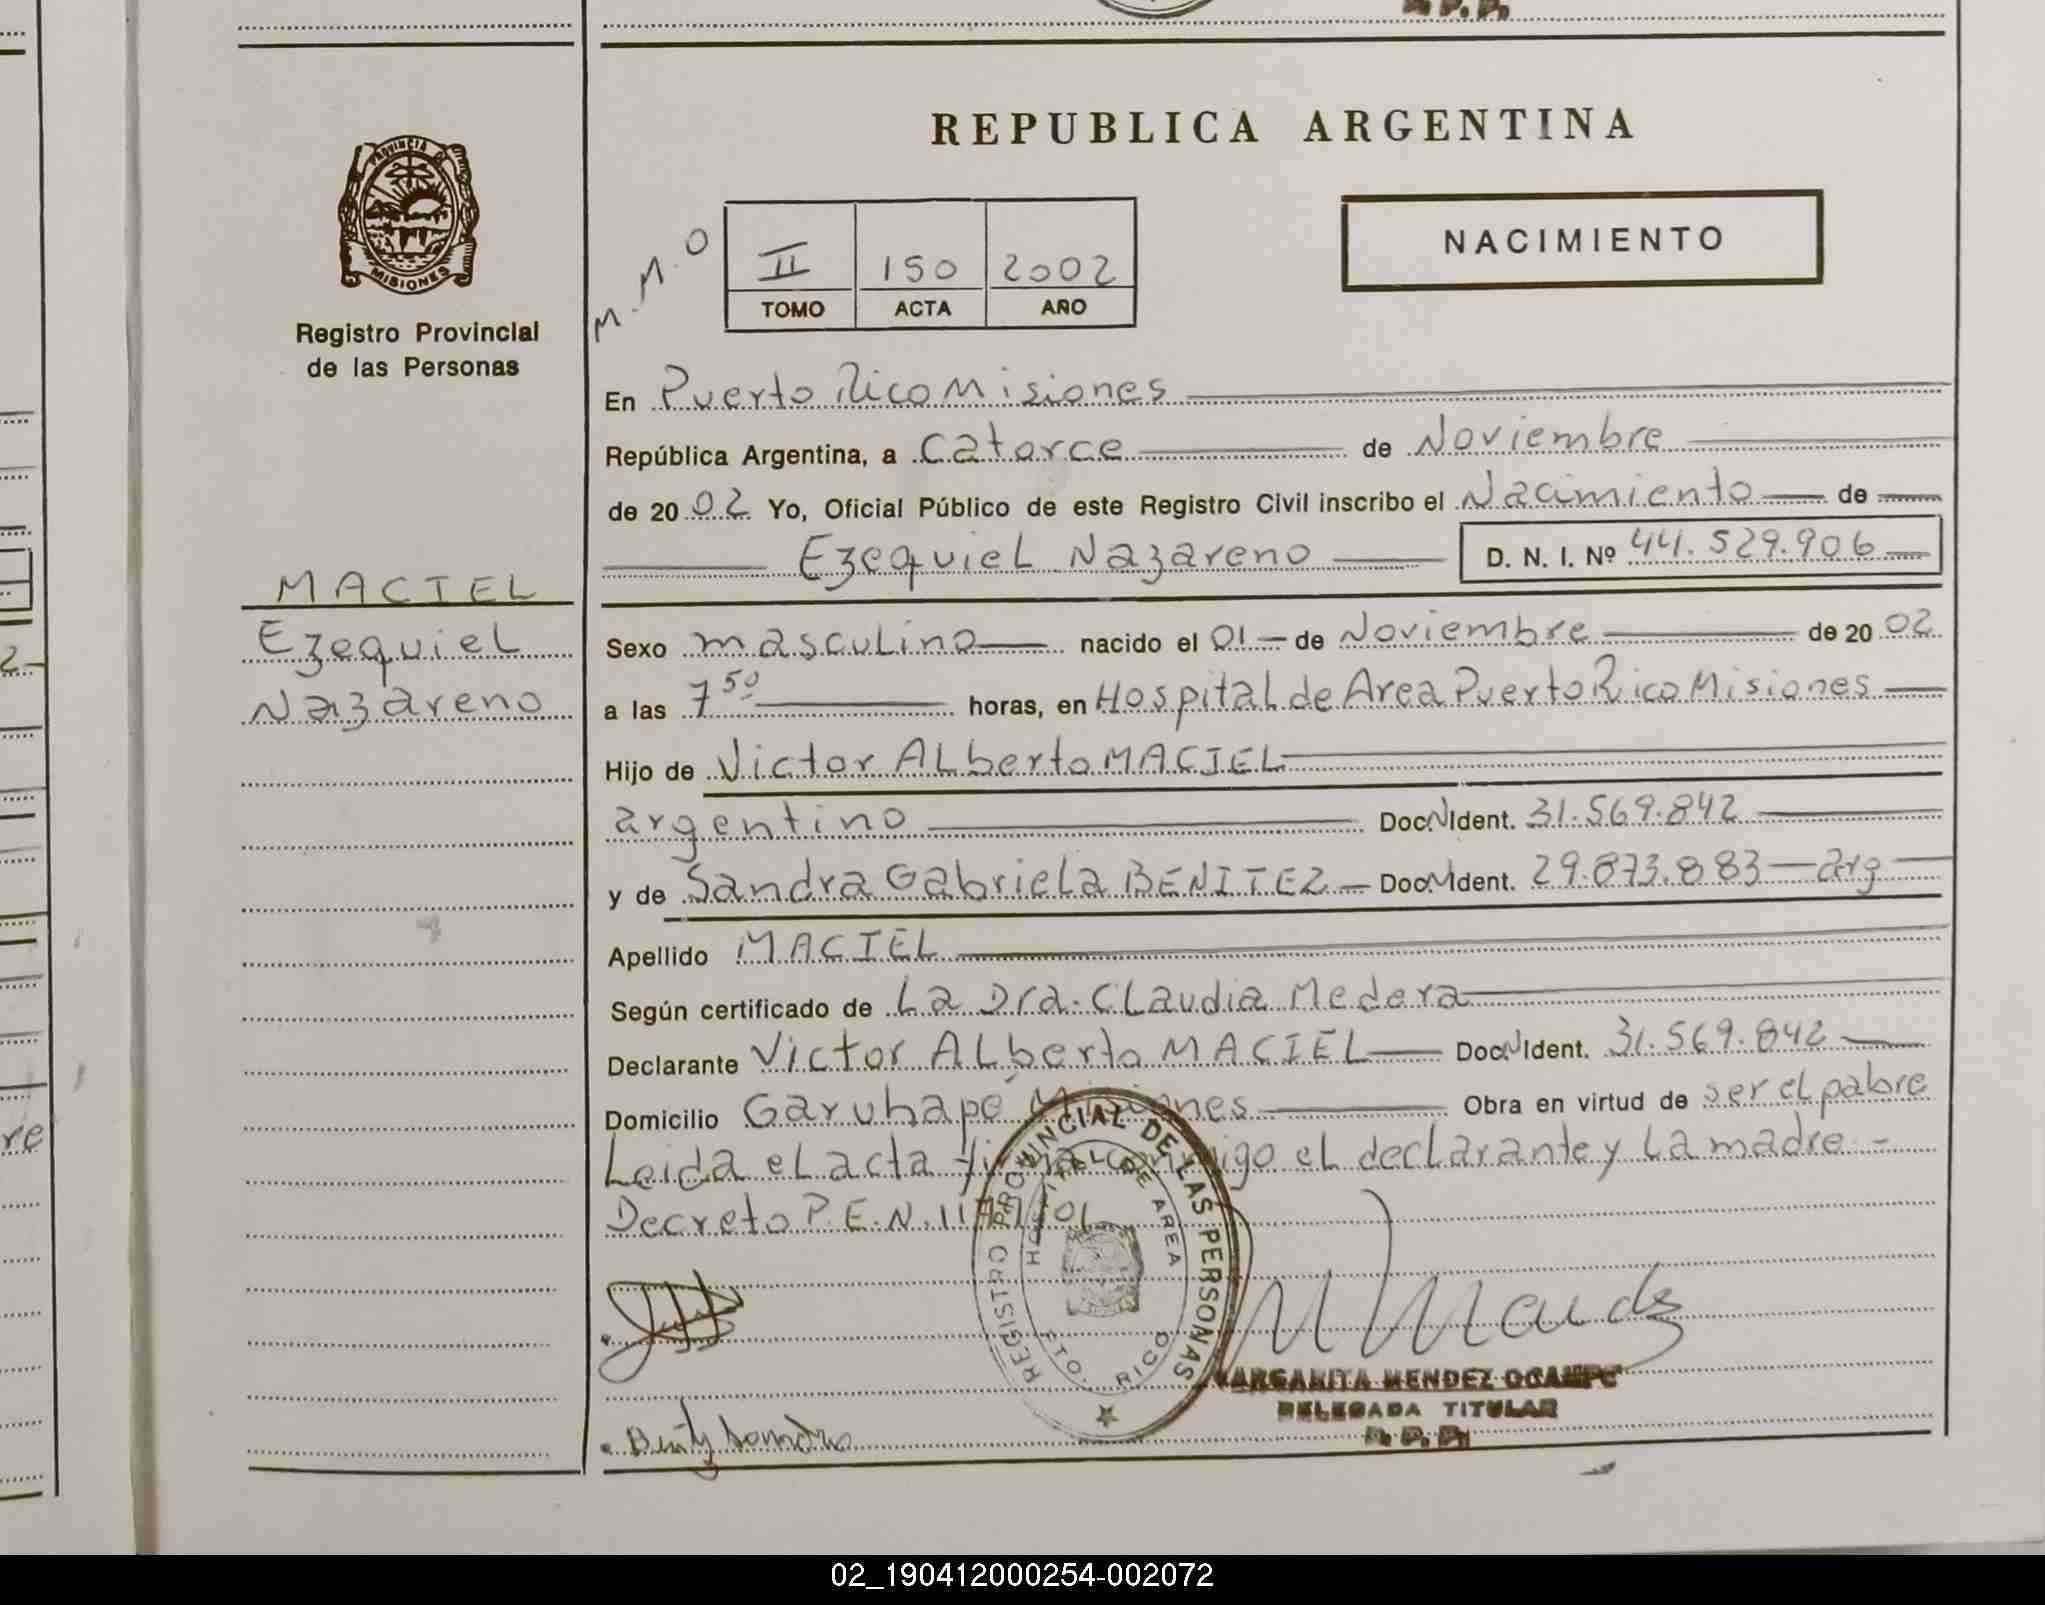 REPUBLICA ARGENTINA
PROVINCIA DE
MISIONES
Registro Provincial
de las Personas
M.M.O
II 150 2002
TOMO ACTA AÑO
NACIMIENTO
En Puerto Rico Misiones
República Argentina, a catorce de Noviembre
de 2002 Yo, Oficial Público de este Registro Civil inscribo el Nacimiento de
Ezequiel Nazareno D. N. I. Nº 44.529.906
MACIEL
Ezequiel
Nazareno
Sexo masculino nacido el 01 de Noviembre de 2002
a las 7 50 horas, en Hospital de Area Puerto Rico Misiones
Hijo de Victor Alberto MACIEL
argentino Doc.N Ident. 31.569.842
y de Sandra Gabriela BENITEZ Doc.N Ident. 29.873.883 - arg
Apellido MACIEL
Según certificado de La Dra. Claudia Medera
Declarante Victor Alberto MACIEL Doc.N Ident. 31.569.842
Domicilio Garuhapé Misiones Obra en virtud de ser el pabre
Leida el acta firma conmigo el declarante y La madre.-
Decreto P.E.N.
REGISTRO PROVINCIAL DE LAS PERSONAS
HOSPITAL DE AREA
PTO. RICO
MARGARITA MENDEZ OCAMPO
DELEGADA TITULAR
R. P. P.
02_190412000254-002072